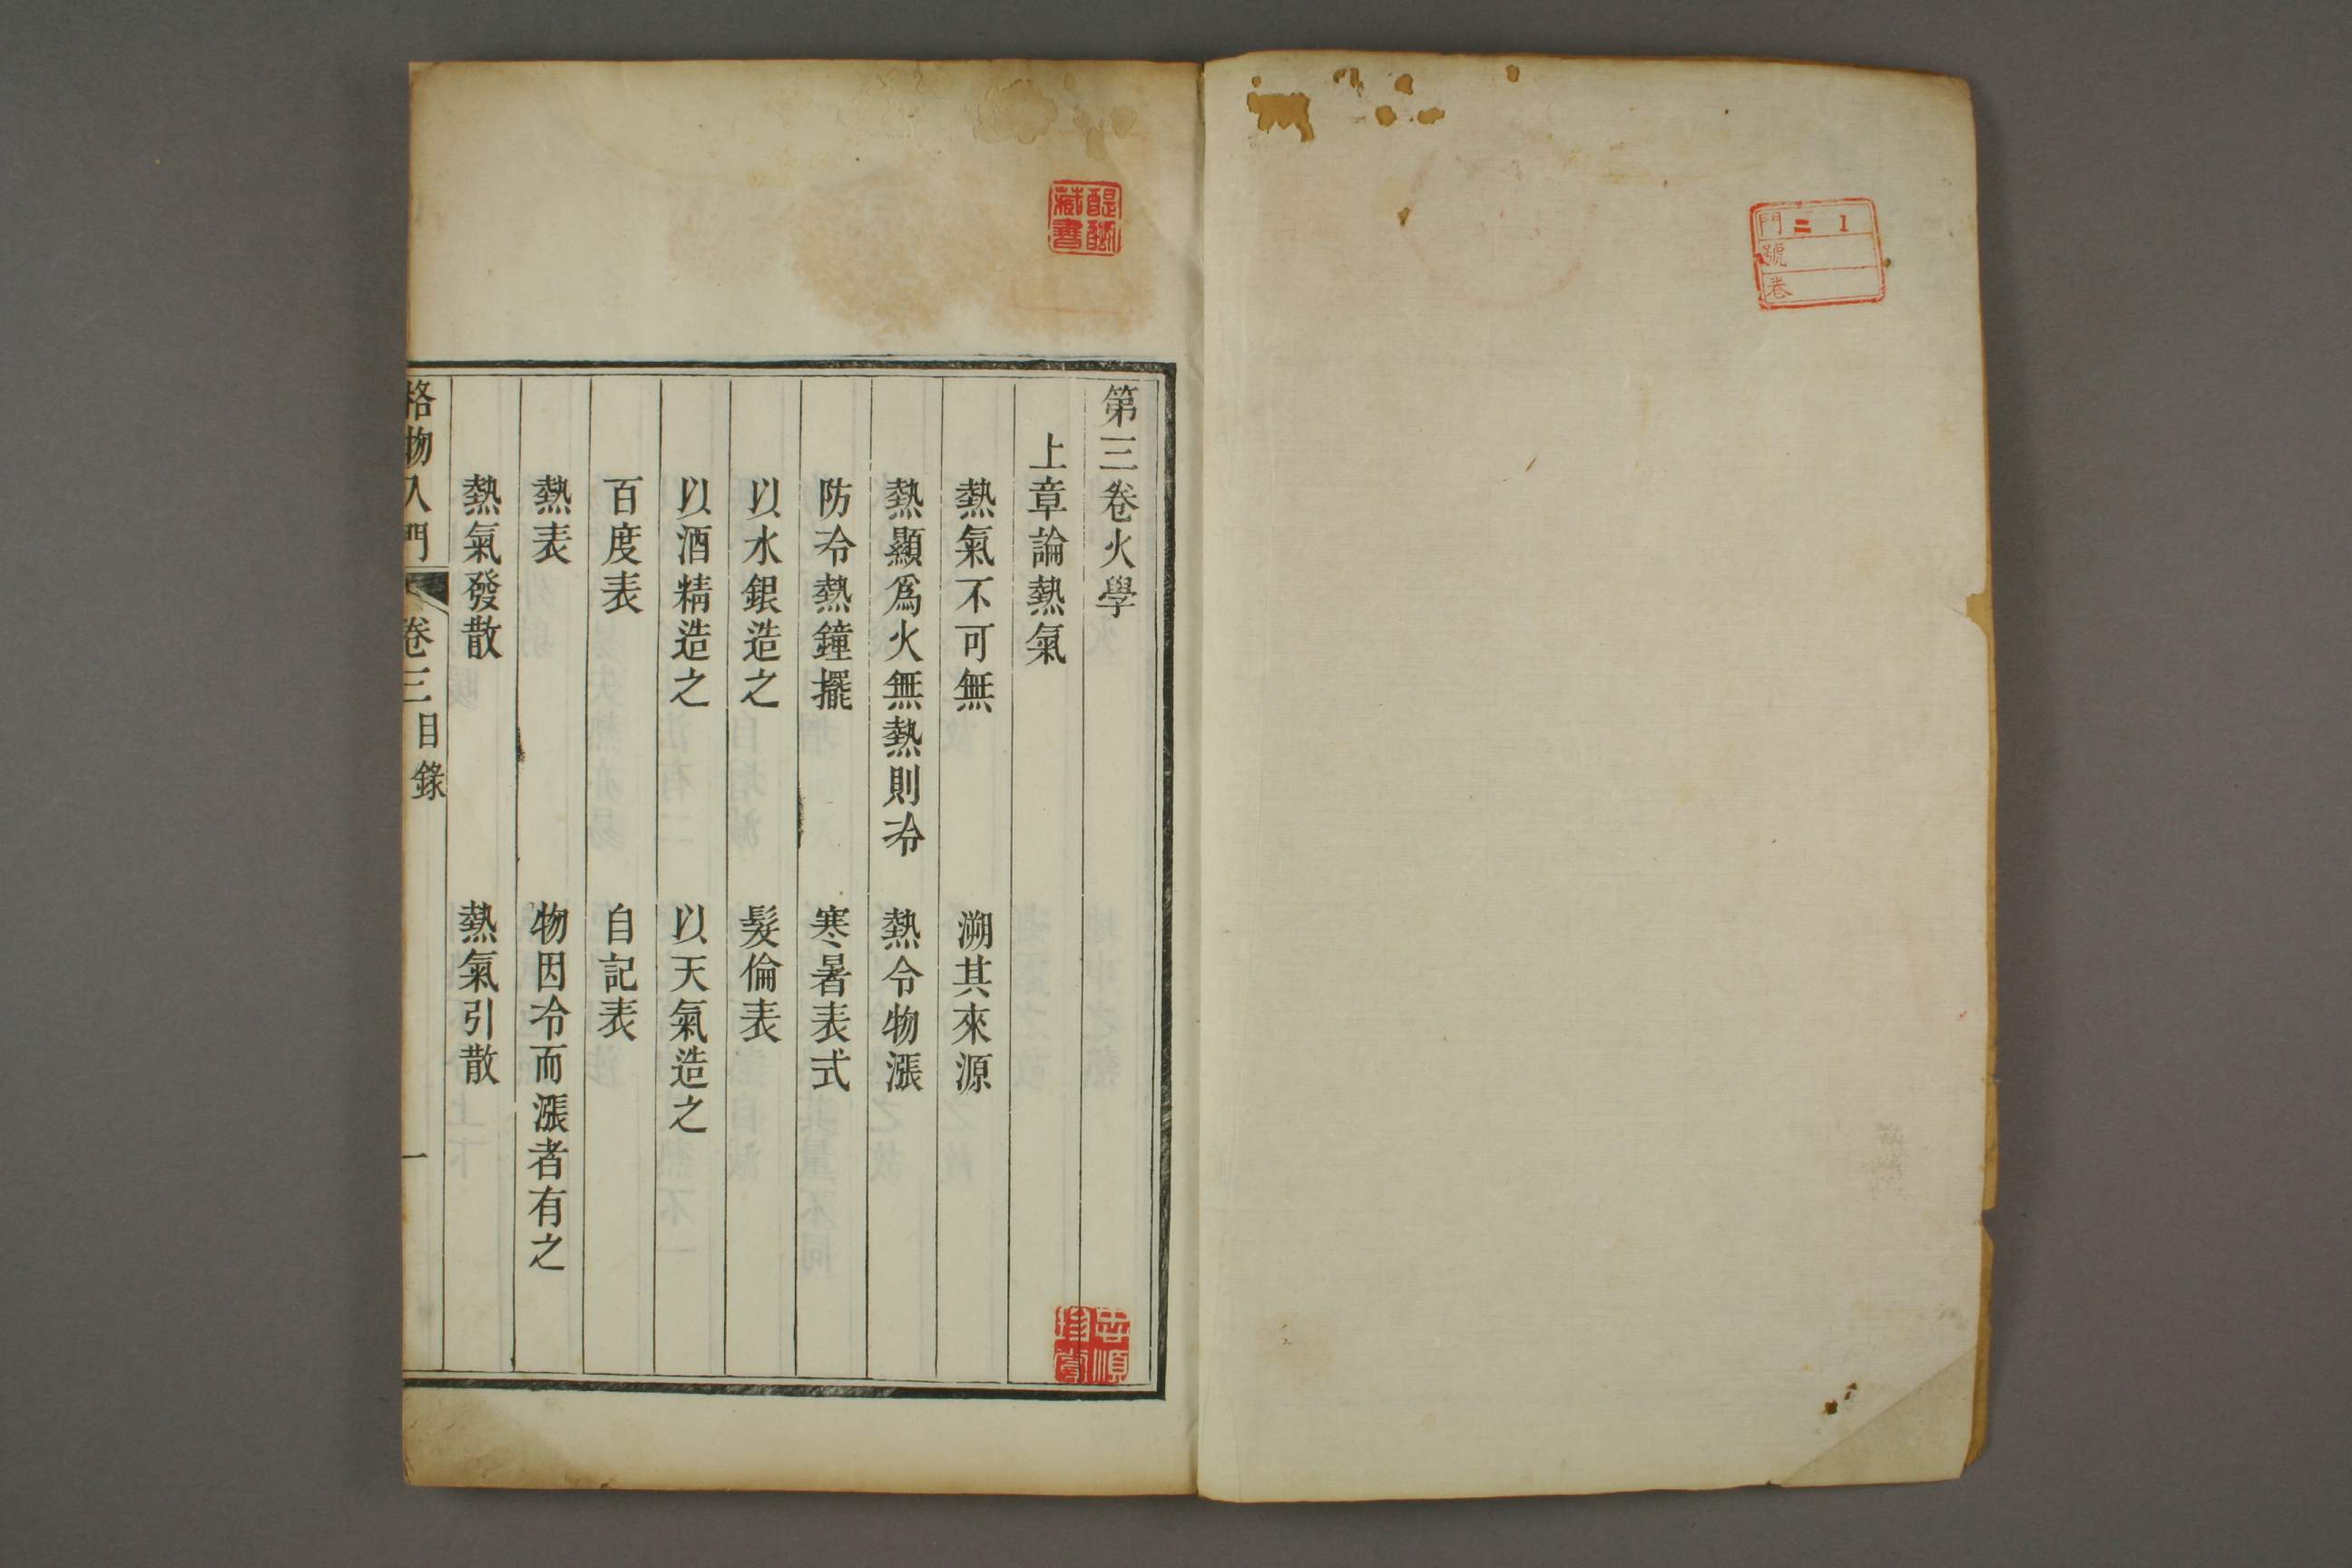 門 二 1
號
卷
藏書
第三卷火學
上章論熱氣
熱氣不可無 溯其來源
熱顯爲火無熱則冷 熱令物漲
防冷熱鐘擺 寒暑表式
以水銀造之 髮倫表
以酒精造之 以天氣造之
百度表 自記表
熱表 物因冷而漲者有之
熱氣發散 熱氣引散
格物入門 卷三目錄 一